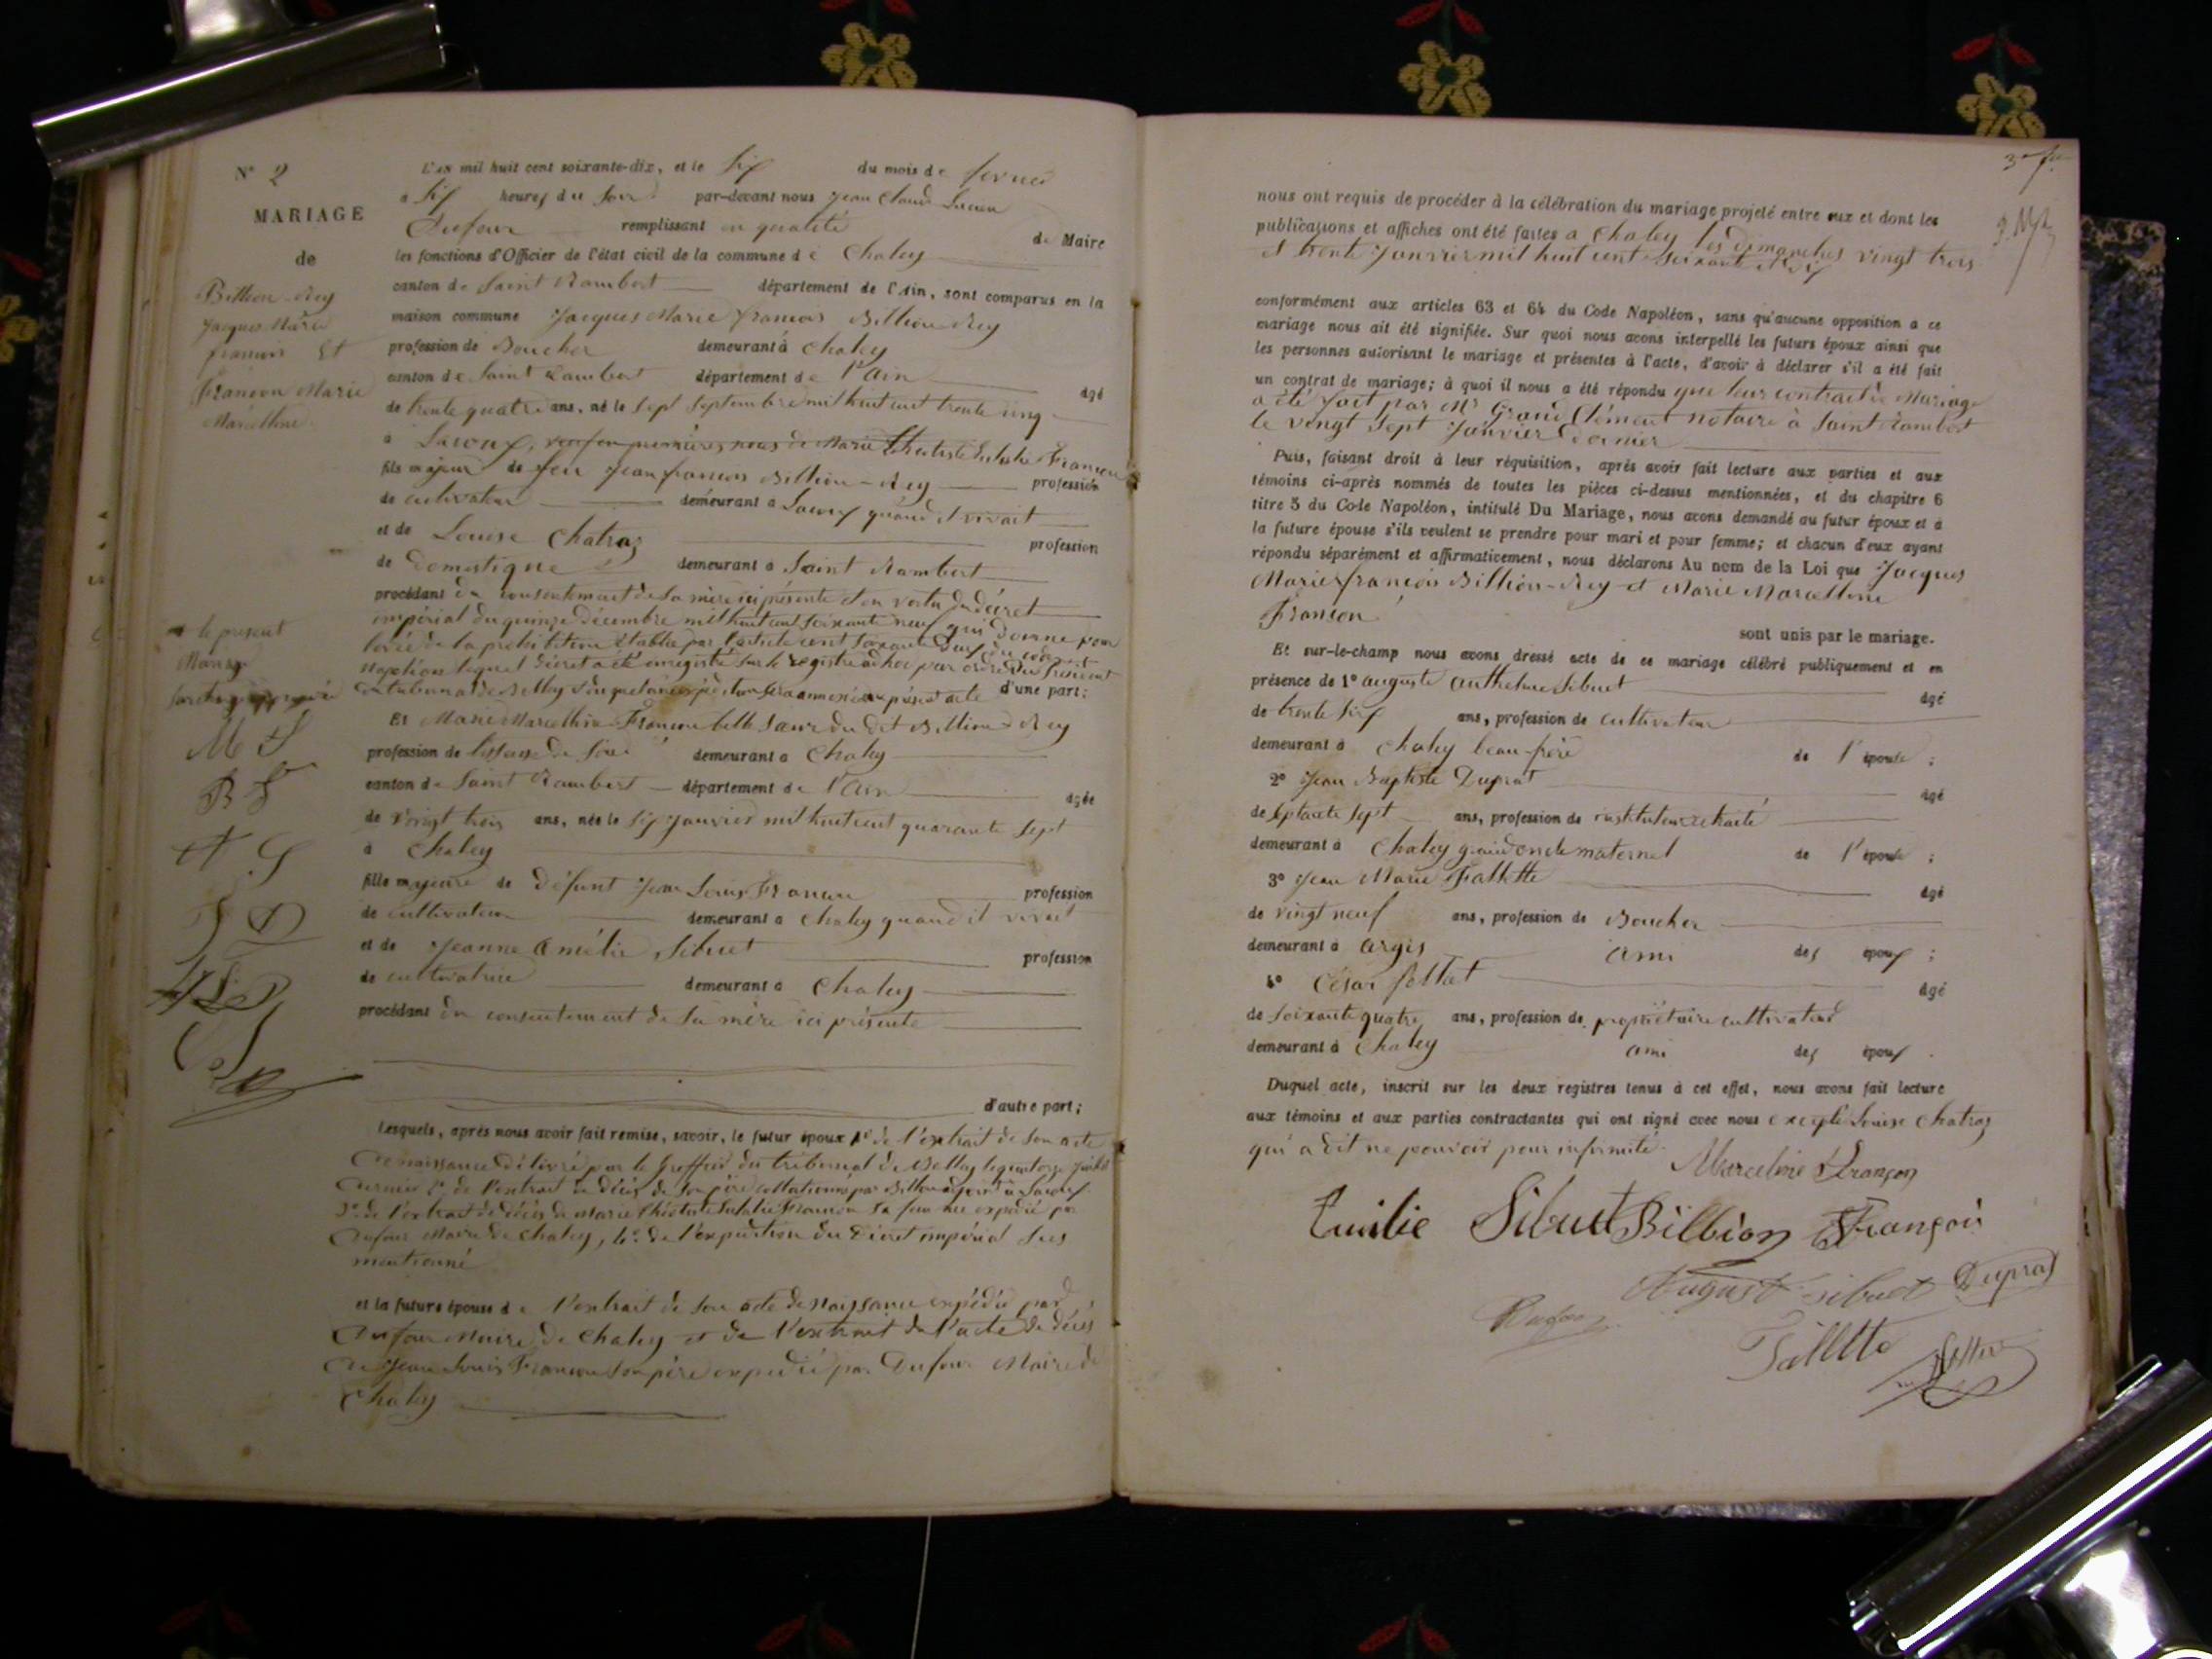 N° 2
MARIAGE
de
Billion-Rey
Jacques Marie
françois Et
françon Marie
Marcelline
L'an mil huit cent soixante-dix, et le six du mois de fevrier
a six heures du soir par-devant nous Jean Claude Lucien
Dufour remplissant en qualité de Maire
les fonctions d'Officier de l'état civil de la commune de Chaley
canton de Saint Rambert département de l'Ain, sont comparus en la
maison commune Jacques Marie françois Billion Rey
profession de Boucher demeurant à Chaley
canton de Saint Rambert département de l'Ain âgé
de trente quatre ans, né le sept septembre mil huit cent trente cinq
à Lacoux, veuf en premières noces de Marie Théotiste Eulalie Françon
fils majeur de feu Jean françois Billion-Rey profession
de cultivateur demeurant à Lacoux quand il vivait
et de Louise Chatraz profession
de domestique demeurant à Saint Rambert
procédant du consentement de sa mère ici présente et en vertu du décret
impérial du quinze décembre mil huit cent soixante neuf qui donne pour
levée de la prohibition établie par l'article cent soixante deux du code
napoléon lequel décret a été enregistré sur le registre ad hoc par ordre du président
du tribunal de Belley d'une part;
le présent
Mariage
M F
B F
A S
J D
Et Marie Marcelline Françon belle sœur du dit Billion-Rey
profession de tisseuse de soie demeurant à Chaley
canton de Saint Rambert département de l'Ain âgée
de vingt trois ans, née le six Janvier mil huit cent quarante sept
à Chaley
fille majeure de défunt Jean Louis Françon profession
de cultivateur demeurant à Chaley quand il vivait
et de Jeanne Amélie Sibuet profession
de cultivatrice demeurant à Chaley
procédant du consentement de sa mère ici présente
d'autre part;
Lesquels, après nous avoir fait remise, savoir, le futur époux 1° de l'extrait de son acte
de naissance délivré par le Greffier du tribunal de Belley le quatorze
dernier 2° de l'extrait de décès de son père collationné par Billion adjoint à Lacoux
3° de l'extrait de décès de Marie Théotiste Eulalie Françon sa femme expédié par
Dufour Maire de Chaley, 4° de l'expédition du Décret impérial sus
mentionné
et la future épouse de l'extrait de son acte de naissance expédié par
Dufour Maire de Chaley et de l'extrait de l'acte de décès
de Jean Louis Françon son père expédié par Dufour Maire de
Chaley
nous ont requis de procéder à la célébration du mariage projeté entre eux et dont les
publications et affiches ont été faites à Chaley les dimanches vingt trois
et trente Janvier mil huit cent soixante et dix
conformément aux articles 63 et 64 du Code Napoléon, sans qu'aucune opposition a ce
mariage nous ait été signifiée. Sur quoi nous avons interpellé les futurs époux ainsi que
les personnes autorisant le mariage et présentes à l'acte, d'avoir à déclarer s'il a été fait
un contrat de mariage; à quoi il nous a été répondu que leur contract de Mariage
a été fait par Mr Grand Clément notaire à Saint Rambert
le vingt sept Janvier dernier
Puis, faisant droit à leur réquisition, après avoir fait lecture aux parties et aux
témoins ci-après nommés de toutes les pièces ci-dessus mentionnées, et du chapitre 6
titre 5 du Code Napoléon, intitulé Du Mariage, nous avons demandé au futur époux et à
la future épouse s'ils veulent se prendre pour mari et pour femme; et chacun d'eux ayant
répondu séparément et affirmativement, nous déclarons Au nom de la Loi que Jacques
Marie françois Billion-Rey et Marie Marcelline
Françon
sont unis par le mariage.
Et sur-le-champ nous avons dressé acte de ce mariage célébré publiquement et en
présence de 1° auguste Anthelme Sibuet âgé
de trente six ans, profession de cultivateur
demeurant à Chaley beau-frère de l'épouse ;
2° Jean Baptiste Duprat âgé
de septante sept ans, profession de instituteur retraité
demeurant à Chaley grand oncle maternel de l'épouse ;
3° Jean Marie Tallette âgé
de vingt neuf ans, profession de Boucher
demeurant à argis ami des époux ;
4° César Jolliet âgé
de soixante quatre ans, profession de propriétaire cultivateur
demeurant à Chaley ami des époux .
Duquel acte, inscrit sur les deux registres tenus à cet effet, nous avons fait lecture
aux témoins et aux parties contractantes qui ont signé avec nous excepté Louise Chatraz
qui a dit ne pouvoir pour infirmité.
Marceline Françon
Emilie Sibuet Billion François
August Sibuet Duprat
Dufour
Tallette